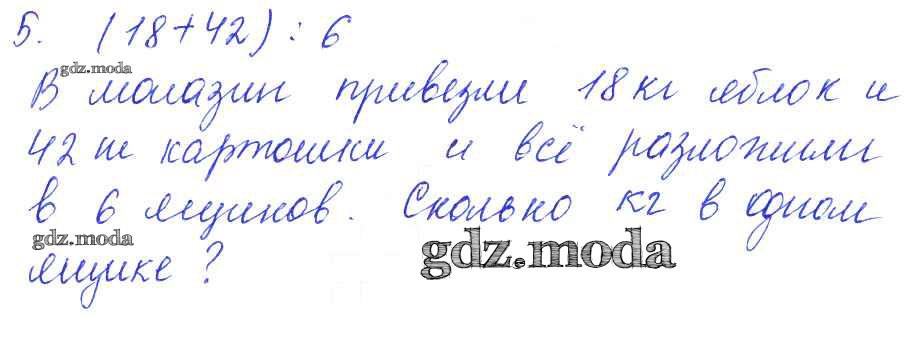 5. (18+42) : 6
gdz.moda
В магазин привезли 18 кг яблок и
42 кг картошки и всё разложили
в 6 ящиков. Сколько кг в одном
gdz.moda
gdz.moda
ящике?